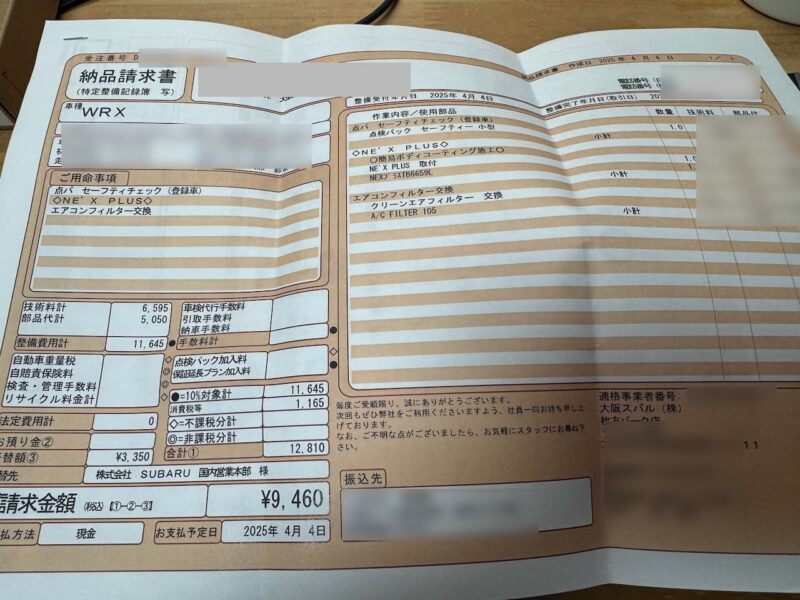 受注番号 D
納品請求書
(特定整備記録簿 写)
車種
WRX
ご用命事項
点パ セーフティチェック (登録車)
◇NE'X PLUS◇
エアコンフィルター交換
技術料計 6,595
部品代計 5,050
整備費用計 11,645
自動車重量税
自賠責保険料
検査・管理手数料
リサイクル料金計
法定費用計 0
お預り金②
替額③ ¥3,350
替先 株式会社 SUBARU 国内営業本部 様
請求金額 (税込)【①-②-③】 ¥9,460
払方法 現金 お支払予定日 2025年 4月 4日
車検代行手数料
引取手数料
納車手数料
●手数料計
点検パック加入料
保証延長プラン加入料
●=10%対象計 11,645
消費税等 1,165
◇=不課税分計
◎=非課税分計
合計① 12,810
納品請求書 作成日 2025年 4月 4日 1/ 1
電話番号
電話番号
整備受付年月日 2025年 4月 4日
整備完了年月日(取引日) 202
作業内容/使用部品 数量 技術料 部品代
点パ セーフティチェック (登録車)
点検パック セーフティー 小型 1.0
小計
◇NE'X PLUS◇
○簡易ボディコーティング施工○
NE'X PLUS 取付 1.0
NEXプラスTB6659L
小計
エアコンフィルター交換
クリーンエアフィルター 交換
A/C FILTER 105
小計
毎度ご愛顧賜り、誠にありがとうございます。
次回もぜひ弊社をご利用くださいますよう、社員一同お待ち申し上
げております。
なお、ご不明な点がございましたら、お気軽にスタッフにお尋ね下
さい。
振込先
適格事業者番号:
大阪スバル (株)
枚方パーク店
11